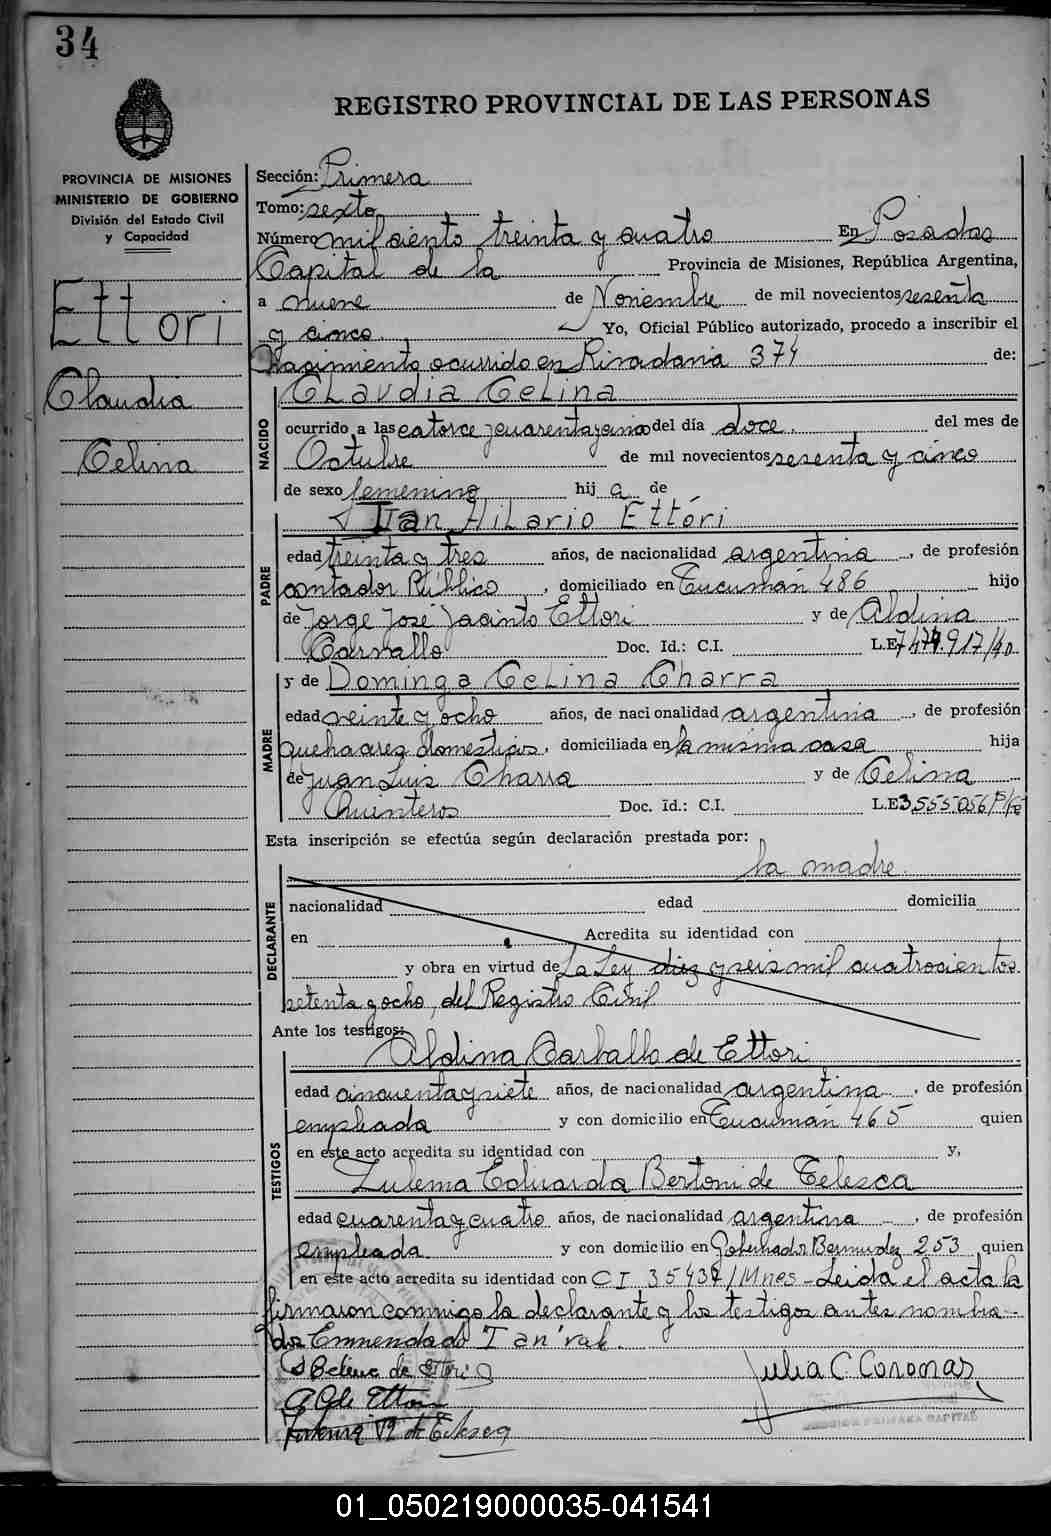 34
REGISTRO PROVINCIAL DE LAS PERSONAS
PROVINCIA DE MISIONES
MINISTERIO DE GOBIERNO
División del Estado Civil
y Capacidad
Ettori
Claudia
Celina
Sección: Primera
Tomo: sexto
Número mil ciento treinta y cuatro En Posadas
Capital de la Provincia de Misiones, República Argentina,
a nueve de Noviembre de mil novecientos sesenta
y cinco. Yo, Oficial Público autorizado, procedo a inscribir el
Nacimiento ocurrido en Rivadavia 374 de:
NACIDO
Claudia Celina
ocurrido a las catorce y cuarenta y cinco del día doce. del mes de
Octubre de mil novecientos sesenta y cinco
de sexo femenino hij a de
PADRE
Ian Hilario Ettori
edad treinta y tres años, de nacionalidad argentina, de profesión
contador Público, domiciliado en Tucumán 486 hijo
de Jorge José Jacinto Ettori y de Aldina
Carvallo Doc. Id.: C.I. L.E. 7.474.917/40
MADRE
y de Dominga Celina Charra
edad veinte y ocho años, de nacionalidad argentina, de profesión
quehaceres domésticos, domiciliada en la misma casa hija
de Juan Luis Charra y de Celina
Quinteros Doc. Id.: C.I. L.E. 3.555.056
Esta inscripción se efectúa según declaración prestada por:
la madre.
DECLARANTE
nacionalidad edad domicilia
en Acredita su identidad con
y obra en virtud de La Ley diez y seis mil cuatrocientos
setenta y ocho, del Registro Civil
Ante los testigos:
TESTIGOS
Aldina Carballo de Ettori
edad cincuenta y siete años, de nacionalidad argentina, de profesión
empleada y con domicilio en Tucumán 465 quien
en este acto acredita su identidad con y,
Zulema Eduarda Bertoni de Telesca
edad cuarenta y cuatro años, de nacionalidad argentina, de profesión
empleada y con domicilio en Gobernador Bermudez 253 quien
en este acto acredita su identidad con CI 35437/Mnes - Leida el acta la
firmaron conmigo la declarante y los testigos antes nombra-
dos Enmendado "Ian" vale.
de Ettori
A C de Ettori
de Telesca
Julia C. Coronas
SECCION PRIMERA CAPITAL
01_050219000035-041541